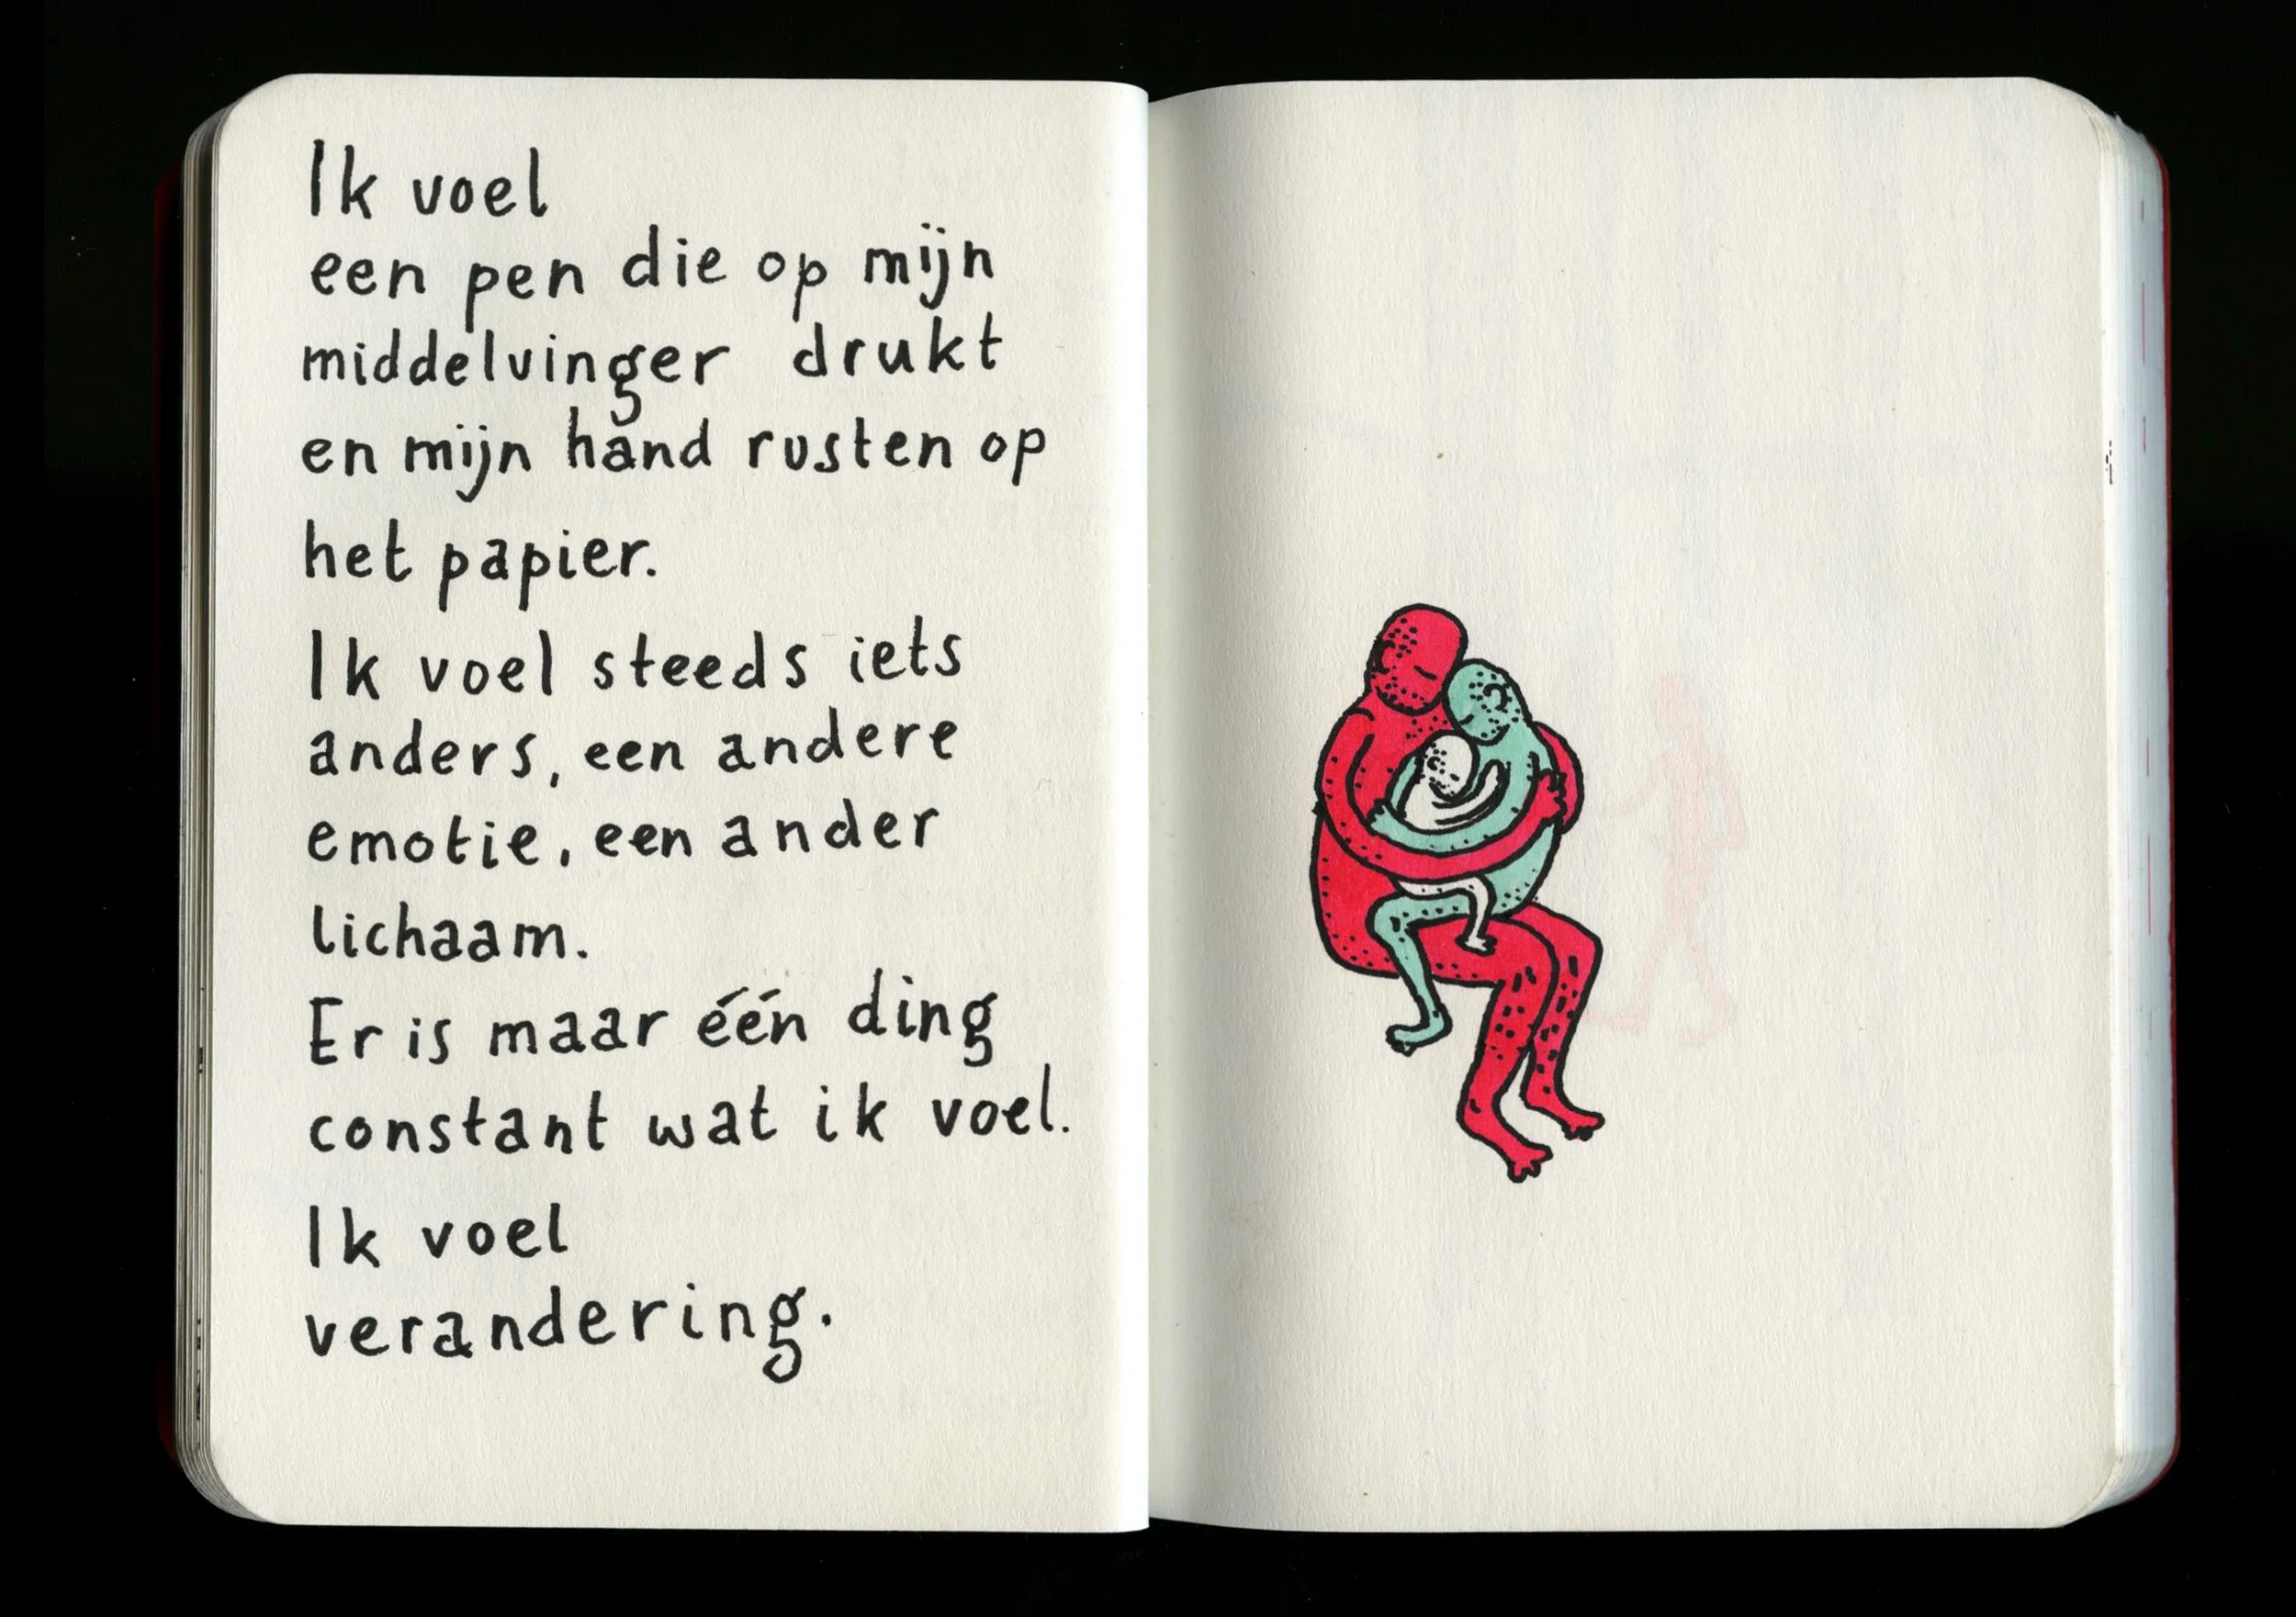 Ik voel
een pen die op mijn
middelvinger drukt
en mijn hand rusten op
het papier.
Ik voel steeds iets
anders, een andere
emotie, een ander
lichaam.
Er is maar één ding
constant wat ik voel.
Ik voel
verandering.